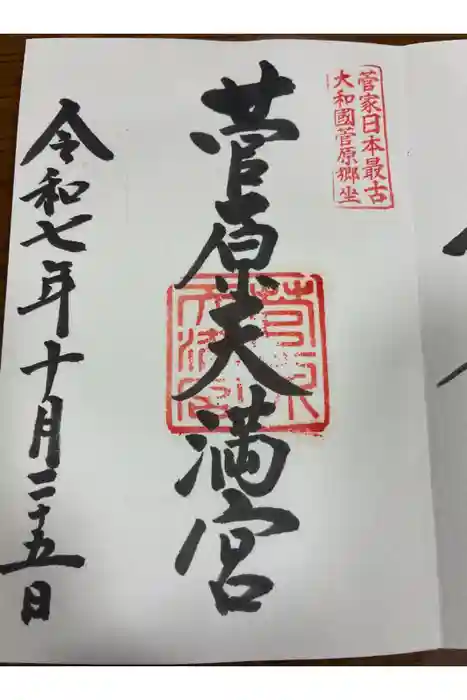 菅家日本最古
大和國菅原郷坐
菅原天満宮
令和七年十月二十五日